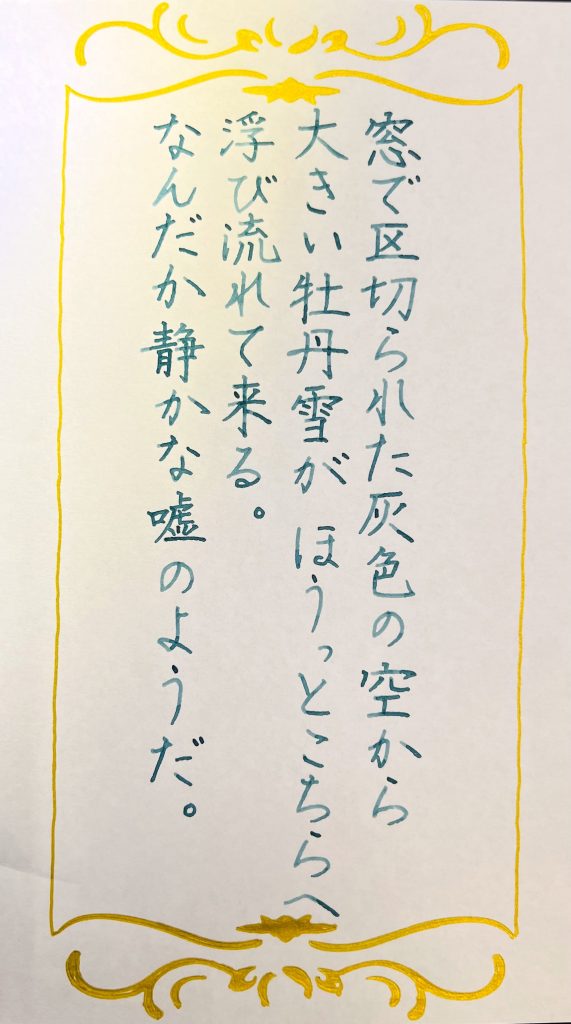 窓で区切られた灰色の空から
大きい牡丹雪が ほうっとこちらへ
浮び流れて来る。
なんだか静かな嘘のようだ。